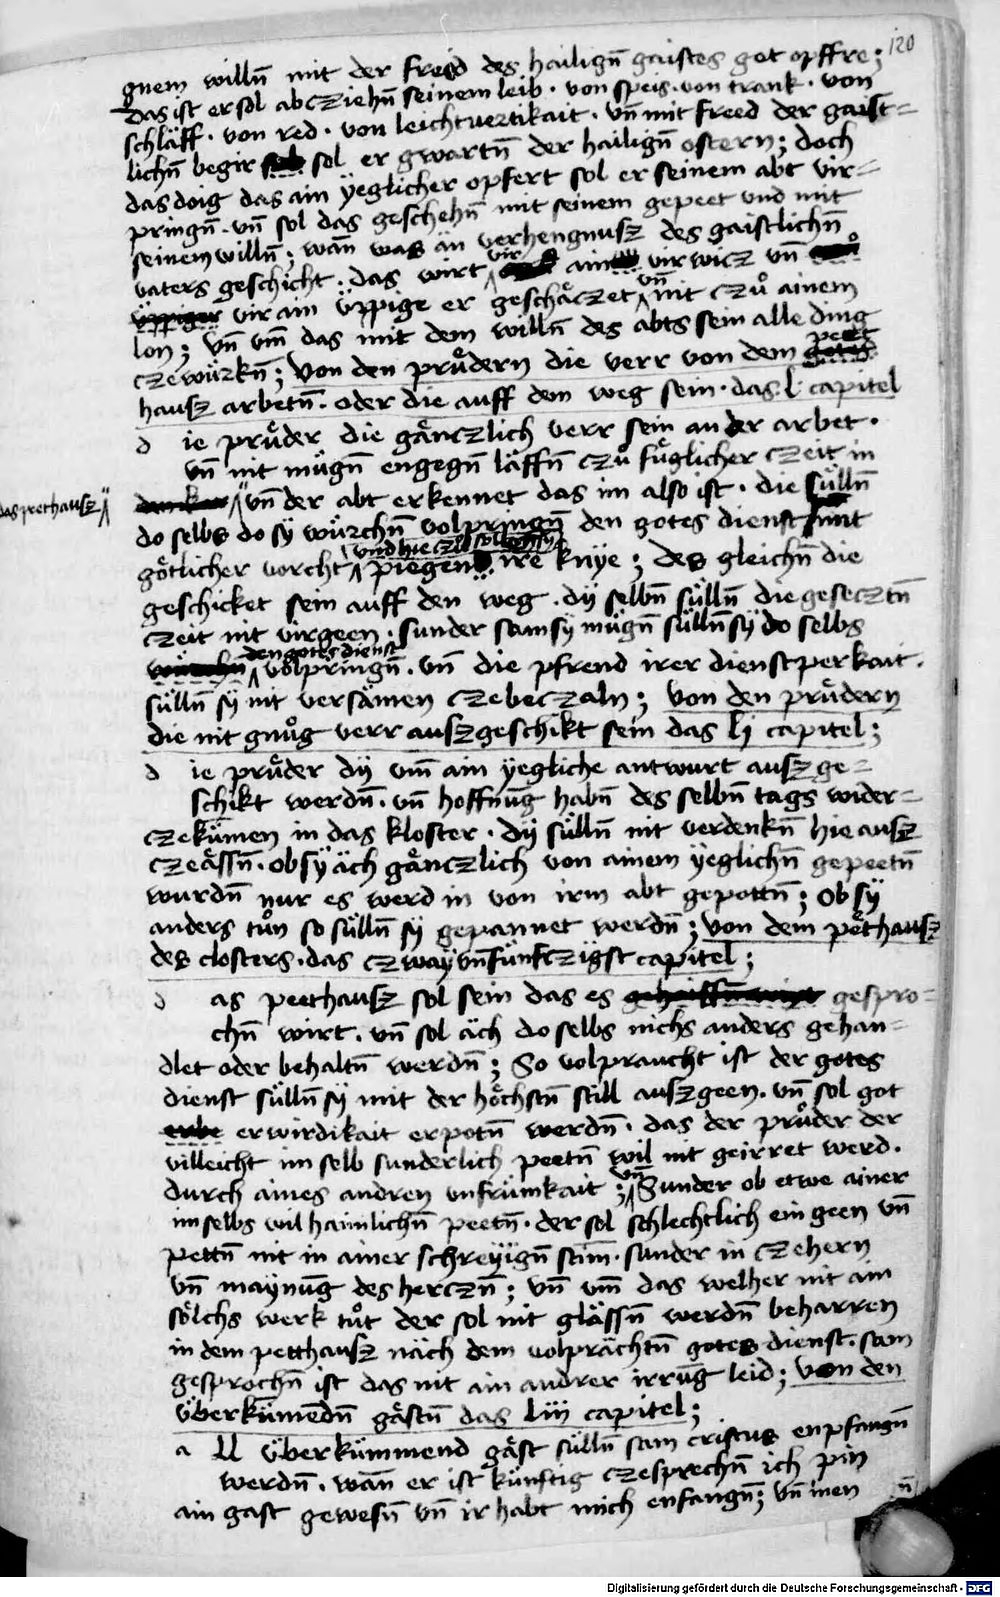 120
gnem willn̄ mit der freid des hailign̄ gaistes got opffre;
Das ist er sol abcziehn̄ seinem leib · von speis · von trank · von
schläff · von red · von leichtuertikait · vn̄ mit freed der gaist=
lichn̄ begir sol er gwartn̄ der hailign̄ ostern; doch
das doig das ain ÿeglicher opfert sol er seinem abt vir=
pringn̄ · vn̄ sol das geschehn̄ mit seinem gepeet vnd mit
seinem willn̄; wan̄ was än verhengnusz des gaistlichn̄
vaters geschicht · das wirt vir ain virwicz vn̄
vir ain v̈ppige er geschäczet vn̄ nit czů ainem
lon; vn̄ vm̄ das mit dem willn̄ des abts sein alle ding
czewürkn̄; Von den průdern die verr von dem peet
hausz arbetn̄ · oder die auff dem weg sein · das · l · capitel
d ie průder die gänczlich verr sein an der arbet ·
vn̄ nit mügn̄ engegn̄ läffn̄ czů fůglicher czeit in
das peethausz vn̄ der abt erkennet das im also ist · die sülln̄
do selbs do sy würchn̄ volpringn̄ den gotes dienst mit
götlicher vorcht vnd hie czů solln̄ sy piegen ire knÿe; des gleichn̄ die
geschicket sein auff den weg · dÿ selbn̄ sülln̄ die gesecztn̄
czeit nit virgeen · sunder sam sy mügn̄ sülln̄ sÿ do selbs
den gotes dienst volpringn̄ · vn̄ die pfrend irer dienstperkait ·
sülln̄ sÿ nit versämen czebeczaln; von den průdern
die nit gnůg verr auszgeschikt sein das lj capitel;
d ie průder dÿ vm̄ ain ÿegliche antwurt auszge=
schikt werdn̄ · vn̄ hoffnūg habn̄ des selbn̄ tags wider=
czekümen in das kloster · dÿ sülln̄ nit verdenkn̄ hie ausz
czeässn̄ · ob sÿ äch gänczlich von ainem ÿeglichn̄ gepeetn̄
wurdn̄ nur es werd in von irm abt gepottn̄; ob sÿ
anders tůn so sülln̄ sÿ gepannet werdn̄; von dem pethausz
des closters · das czwaÿ vn̄ fünfczigst capitel;
d as peethausz sol sein das es gespro=
chn̄ wirt · vn̄ sol äch do selbs nichs anders gehan=
dlet oder behaltn̄ werdn̄; So volpraucht ist der gotes
dienst sülln̄ sÿ mit der höchstn̄ still auszgeen · vn̄ sol got
erwirdikait erpotn̄ werdn̄ · das der průder der
villeicht im selb sunderlich peetn̄ wil nit geirret werd ·
durch aines andren vnfrümkait; vn̄ Sunder ob etwe ainer
im selbs wil haimlichn̄ peetn̄ · der sol schlechtlich ein geen vn̄
pettn̄ nit in ainer schreÿign̄ stim̄ · sunder in czehern
vn̄ maynūg des herczn̄; vn̄ vm̄ das welher nit ain
sölchs werk tůt der sol nit glässn̄ werdn̄ beharren
in dem petthausz näch dem volprächtn̄ gotes dienst · sam
gesprochn̄ ist das nit ain andrer irrūg leid; von den
v̈berkümendn̄ gästn̄ das liij capitel;
a ll v̈berkümmend gäst sülln̄ sam cristus enpfangn̄
werdn̄ · wan̄ er ist künftig czesprechn̄ ich pin
ain gast gewesn̄ vn̄ ir habt mich enfangn̄; vn̄ inen
Digitalisierung gefördert durch die Deutsche Forschungsgemeinschaft - DFG